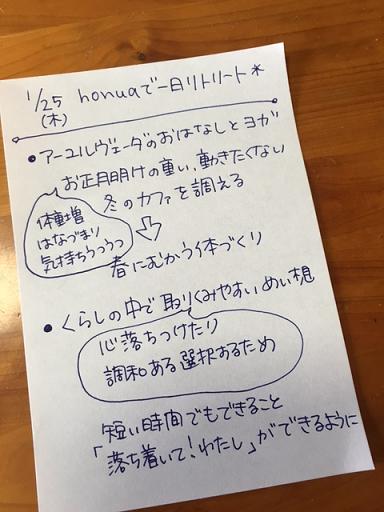 1/25 honuaで一日リトリート*
(木)
• アーユルヴェーダのおはなしとヨガ
お正月明けの重い、動きたくない
冬のカファを調える
体重増
はなづまり
気持ちうつうつ
⇩
春にむかう体づくり
• くらしの中で取りくみやすいめい想
心落ちつけたり
調和ある選択するため
短い時間でもできること
「落ち着いて!わたし」ができるように